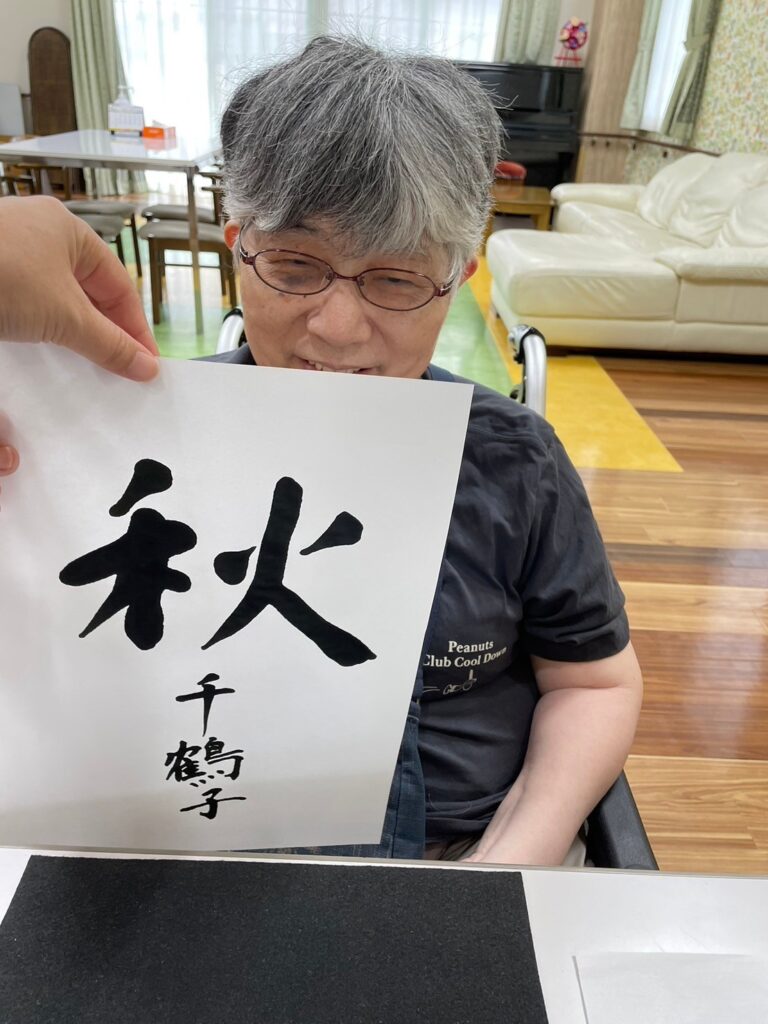 秋
千鶴子
Peanuts
Club Cool Down